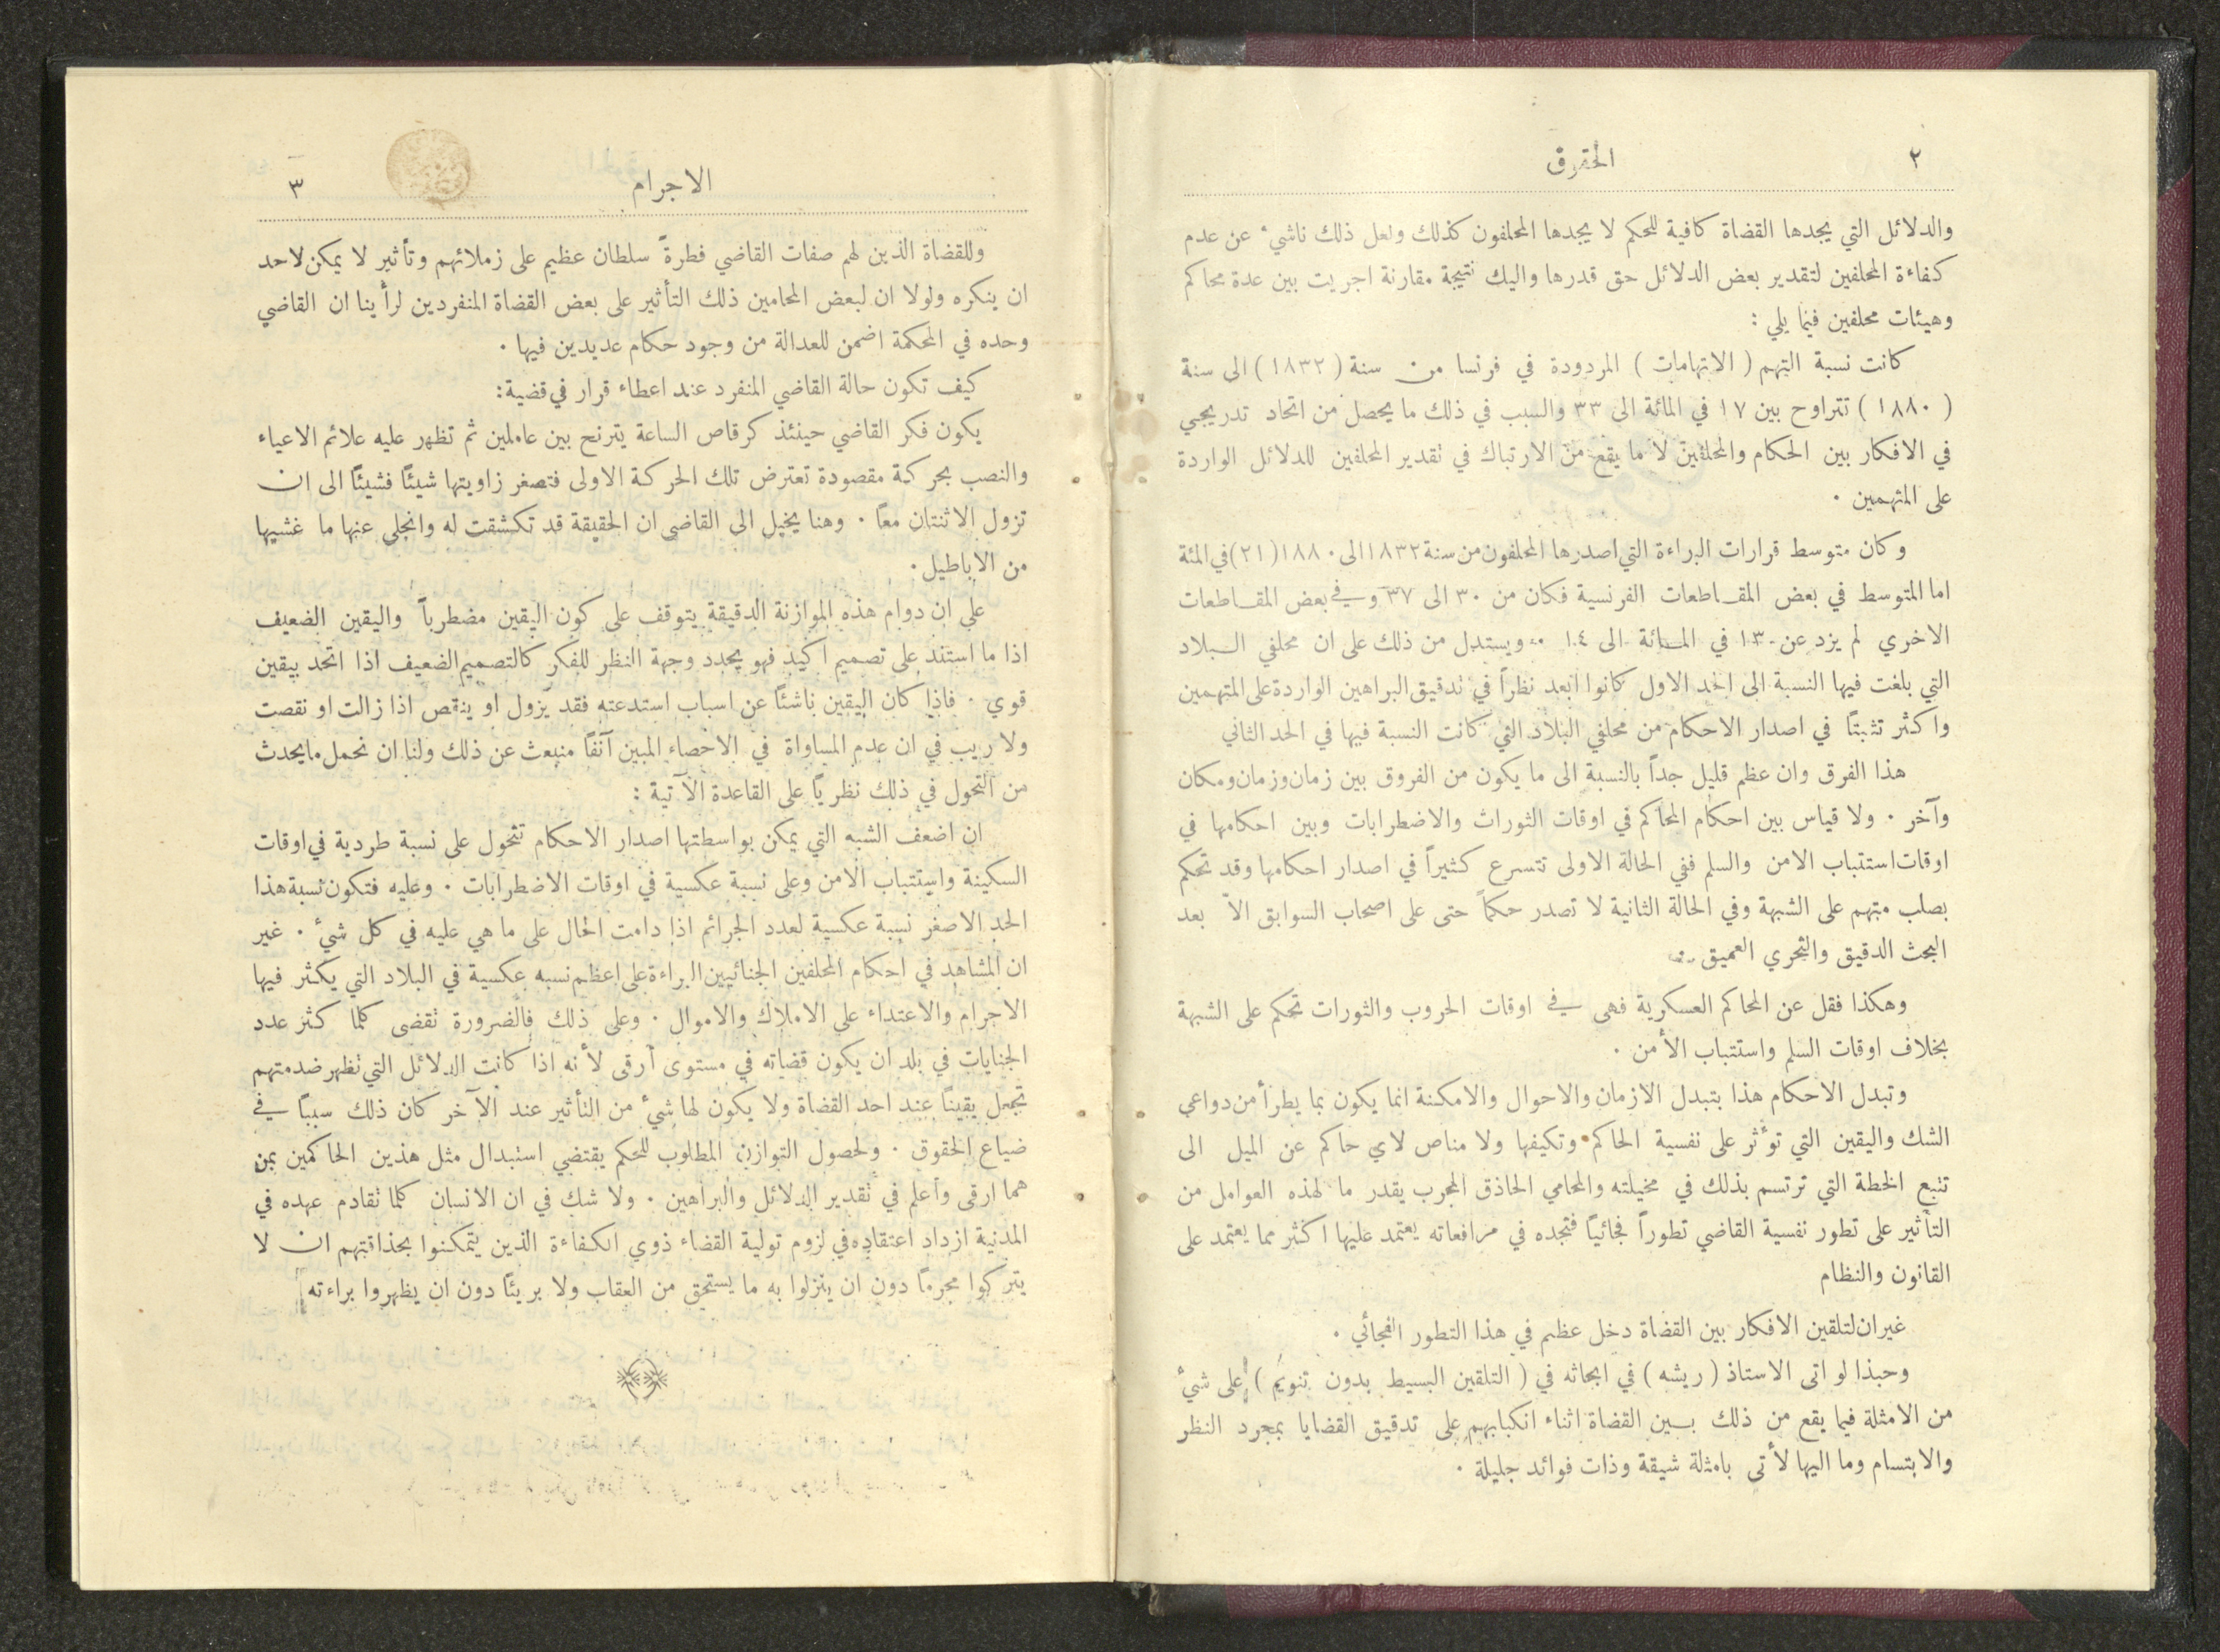 ٢
الحقوق
والدلائل التي يجدها القضاة كافية للحكم لا يجدها المحلفون كذلك ولعل ذلك ناشيء عن عدم
كفاءة المحلفين لتقدير بعض الدلائل حق قدرها واليك نتيجة مقارنة اجريت بين عدة محاكم
وهيئات محلفين فيما يلي :
كانت نسبة التهم ( الاتهامات ) المردودة في فرنسا من سنة ( ١٨٣٢ ) الى سنة
( ١٨٨٠ ) تتراوح بين ١٧ في المائة الى ٣٣ والسبب في ذلك ما يحصل من اتحاد تدريجي
في الافكار بين الحكام والمحلفين لا ما يقع من الارتباك في تقدير المحلفين للدلائل الواردة
على المتهمين .
وكان متوسط قرارات البراءة التي اصدرها المحلفون من سنة ١٨٣٢ الى ١٨٨٠ (٢١) في المئة
اما المتوسط في بعض المقاطعات الفرنسية فكان من ٣٠ الى ٣٧ وفي بعض المقاطعات
الاخرى لم يزد عن ١٣ في المائة الى ١٤ . ويستدل من ذلك على ان محلفي البلاد
التي بلغت فيها النسبة الى الحد الاول كانوا ابعد نظراً في تدقيق البراهين الواردة على المتهمين
واكثر تثبتاً في اصدار الاحكام من محلفي البلاد التي كانت النسبة فيها في الحد الثاني
هذا الفرق وان عظم قليل جداً بالنسبة الى ما يكون من الفروق بين زمان وزمان ومكان
وآخر . ولا قياس بين احكام المحاكم في اوقات الثورات والاضطرابات وبين احكامها في
اوقات استتباب الامن والسلم ففي الحالة الاولى تتسرع كثيراً في اصدار احكامها وقد تحكم
بصلب متهم على الشبهة وفي الحالة الثانية لا تصدر حكماً حتى على اصحاب السوابق الاّ بعد
البحث الدقيق والتحري العميق .
وهكذا فقل عن المحاكم العسكرية فهى في اوقات الحروب والثورات تحكم على الشبهة
بخلاف اوقات السلم واستتباب الأمن .
وتبدل الاحكام هذا بتبدل الازمان والاحوال والامكنة انما يكون بما يطرأ من دواعي
الشك واليقين التي توَّثر على نفسية الحاكم وتكيفها ولا مناص لاي حاكم عن الميل الى
تتبع الخطة التي ترتسم بذلك في مخيلته والمحامي الحاذق المجرب يقدر ما لهذه العوامل من
التأثير على تطور نفسية القاضي تطوراً فجائياً فتجده في مرافعاته يعتمد عليها اكثر مما يعتمد على
القانون والنظام
غيران لتلقين الافكار بين القضاة دخل عظيم في هذا التطور الفجائي .
وحبذا لو اتى الاستاذ ( ريشه ) في ابحاثه في ( التلقين البسيط بدون تنويم ) على شيء
من الامثلة فيما يقع من ذلك بين القضاة اثناء انكبابهم على تدقيق القضايا بمجرد النظر
والابتسام وما اليها لأتى بامثلة شيقة وذات فوائد جليلة .
الاجرام
٣
وللقضاة الذين لهم صفات القاضي فطرةً سلطان عظيم على زملائهم وتأثير لا يمكن لاحد
ان ينكره ولولا ان لبعض المحامين ذلك التأثير على بعض القضاة المنفردين لرأينا ان القاضي
وحده في المحكمة اضمن للعدالة من وجود حكام عديدين فيها .
كيف تكون حالة القاضي المنفرد عند اعطاء قرار في قضية :
يكون فكر القاضي حينئذ كرقاص الساعة يترنح بين عاملين ثم تظهر عليه علائم الاعياء
والنصب بحركة مقصودة تعترض تلك الحركة الاولى فتصغر زاويتها شيئاً فشيئاً الى ان
تزول الاثنتان معاً . وهنا يخيل الى القاضي ان الحقيقة قد تكشفت له وانجلى عنها ما غشيها
من الاباطيل .
على ان دوام هذه الموازنة الدقيقة يتوقف على كون اليقين مضطرباً واليقين الضعيف
اذا ما استند على تصميم اكيد فهو يحدد وجهة النظر للفكر كالتصميم الضعيف اذا اتحد بيقين
قوي . فاذا كان اليقين ناشئاً عن اسباب استدعته فقد يزول او ينقص اذا زالت او نقصت
ولا ريب في ان عدم المساواة في الاحصاء المبين آنفاً منبعث عن ذلك ولنا ان نحمل ما يحدث
من التحول في ذلك نظرياً على القاعدة الآتية :
ان اضعف الشبه التي يمكن بواسطتها اصدار الاحكام تتحول على نسبة طردية في اوقات
السكينة واستتباب الامن وعلى نسبة عكسية في اوقات الاضطرابات . وعليه فتكون نسبة هذا
الحد الاصغر نسبة عكسية لعدد الجرائم اذا دامت الحال على ما هي عليه في كل شيء . غير
ان المشاهد في احكام المحلفين الجنائيين البراءة على اعظم نسبه عكسية في البلاد التي يكثر فيها
الاجرام والاعتداء على الاملاك والاموال . وعلى ذلك فالضرورة تقضى كلما كثر عدد
الجنايات في بلد ان يكون قضاته في مستوى أرقى لأنه اذا كانت الدلائل التي تظهر ضد متهم
تجعل يقيناً عند احد القضاة ولا يكون لها شيء من التأثير عند الآخر كان ذلك سبباً في
ضياع الحقوق . ولحصول التوازن المطلوب للحكم يقتضي استبدال مثل هذين الحاكمين بمن
هما ارقى وأعلم في تقدير الدلائل والبراهين . ولا شك في ان الانسان كلما تقادم عهده في
المدنية ازداد اعتقاده في لزوم تولية القضاء ذوي الكفاءة الذين يتمكنوا بحذاقتهم ان لا
يتركوا مجرماً دون ان ينزلوا به ما يستحق من العقاب ولا بريئاً دون ان يظهروا براءته